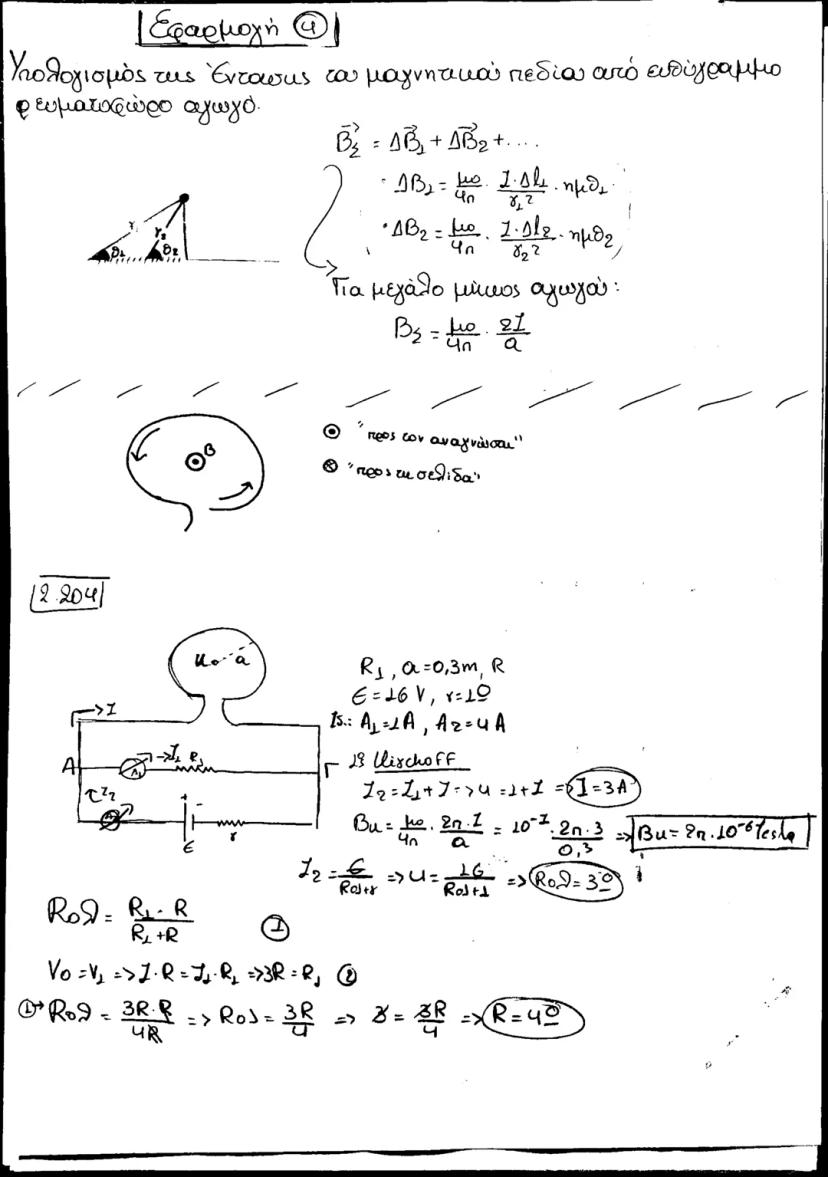 Εφαρμογή ④
Υπολογισμός της Έντασης του μαγνητικού πεδίου από ευθύγραμμο
ρευματοφόρο αγωγό.
B⃗Σ = ΔB⃗₁ + ΔB⃗₂ + ....
· ΔB₁ = μο/4π · I·Δl₁/r₁² · ημθ₁
· ΔB₂ = μο/4π · I·Δl₂/r₂² · ημθ₂
r₁ r₂ θ₁ θ₂
Για μεγάλο μήκος αγωγού:
BΣ = μο/4π · 2I/a
B
⊙ "προς τον αναγνώστη"
⊗ "προς τη σελίδα"
2.204
K a
R₁, a=0,3m, R
ε=16 V, r=1Ω
→I
A₁=1A, A₂=4A
A A₁ →I₁ R₁ Γ
1ο Kirchoff
I₂ = I₁ + I => 4 = 1 + I => I = 3A
I₂ + - ε r
Bκ = μο/4π · 2π·I/a = 10⁻⁷ · 2π·3/0,3 => Bκ = 2π·10⁻⁶ Tesla
I₂ = ε/Rολ+r => 4 = 16/Rολ+1 => Rολ = 3Ω
Rολ = R₁·R/R₁+R ①
V₀ = V₁ => I·R = I₁·R₁ => 3R = R₁ ②
①→ Rολ = 3R·R/4R => Rολ = 3R/4 => 3 = 3R/4 => R = 4Ω